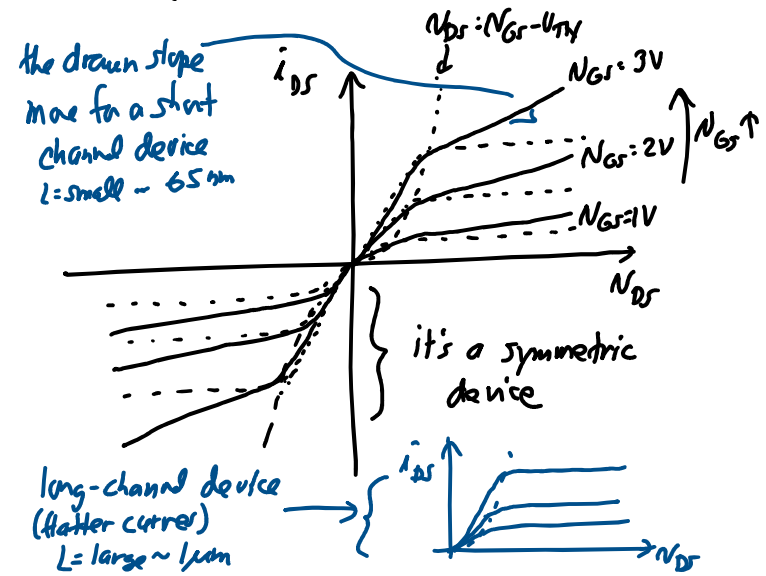 the drawn slope
more for a short
channel device
L=small ~ 65nm
i_DS
v_DS = v_GS - V_TH
v_GS = 3V
v_GS = 2V
v_GS = 1V
v_GS ↑
v_DS
it's a symmetric
device
long-channel device
(flatter curves)
L = large ~ 1μm
i_DS
v_DS